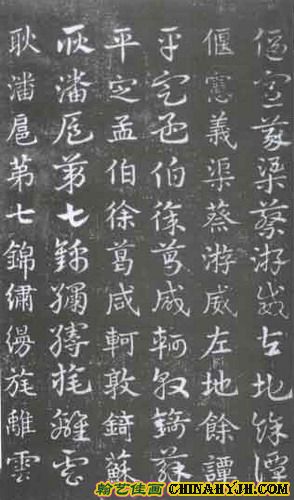 偃憲義渠蔡游威左地餘譚
偃憲義渠蔡游威左地餘譚
平定孟伯徐葛咸軻敦錡蘇
平定孟伯徐葛咸軻敦錡蘇
耿潘扈第七錦繡縵旄離雲
耿潘扈第七錦繡縵旄離雲
翰艺佳画 CHINAHYJH.COM